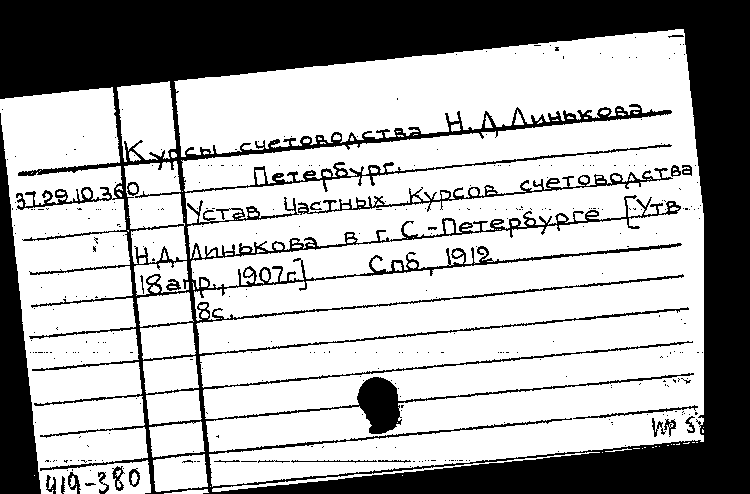 Курсы счетоводства Н.Д.Линькова.
Петербург.
37.29.10.360.
Устав Частных Курсов счетоводства
Н.Д. Линькова в г. С.-Петербурге [Утв.
18 апр., 1907г.] Спб, 1912.
8с.
919-380